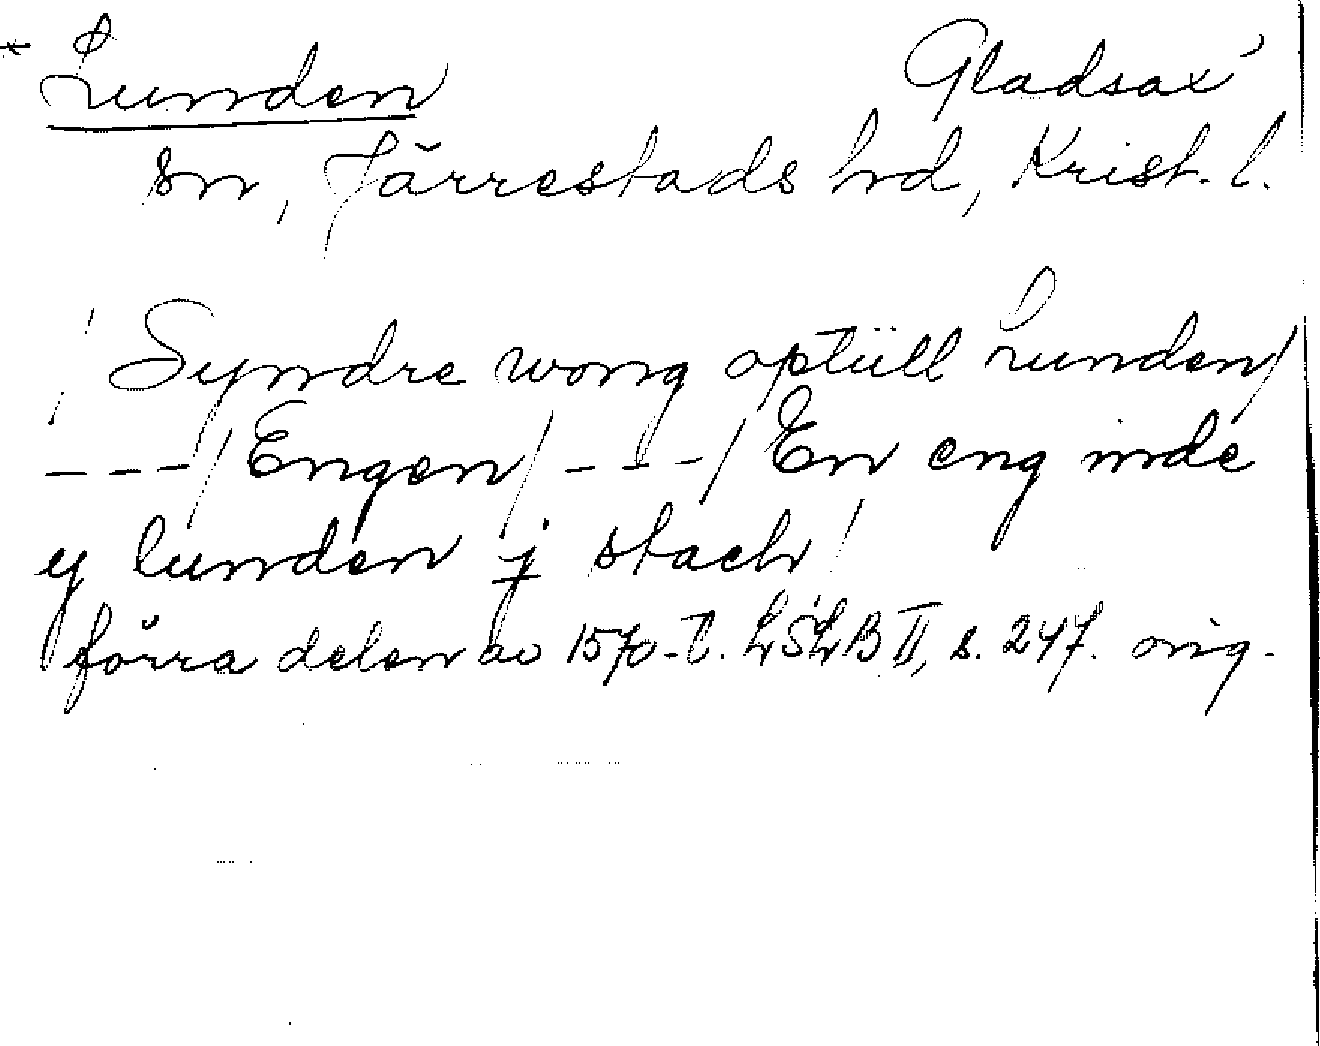 * Lunden Gladsax'
sn, Järrestads hrd, Krist. l.
/ Syndre wong optüll Lunden/
---/ Engen/ ---/ En eng inde
y lunden j stach/
förra delen av 1570-t. LSLB II, s. 247. orig.